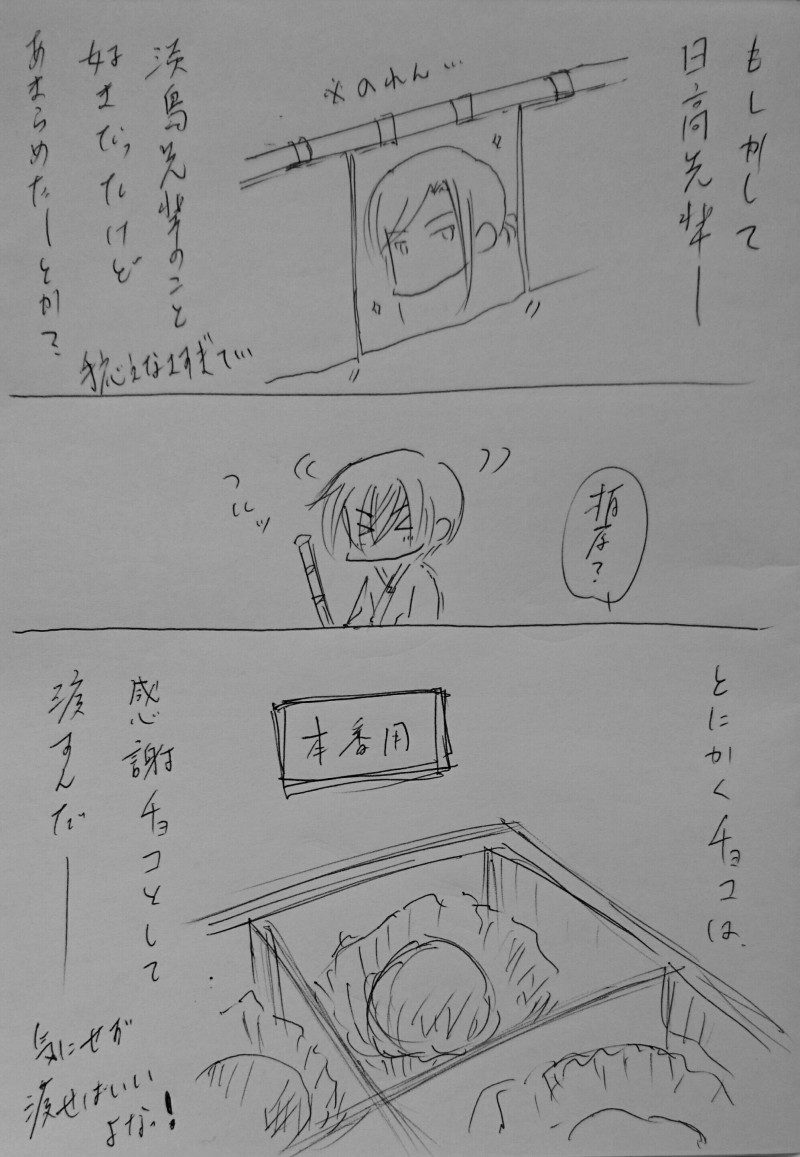 もしかして
日高先輩ー
※のれん…
淡島先輩のこと
好きだったけど
あきらめたーとか？
すぎて…
指圧？
とにかくチョコは、
本番用
感謝チョコとして
渡すんだー
渡せばいい
よなっ！